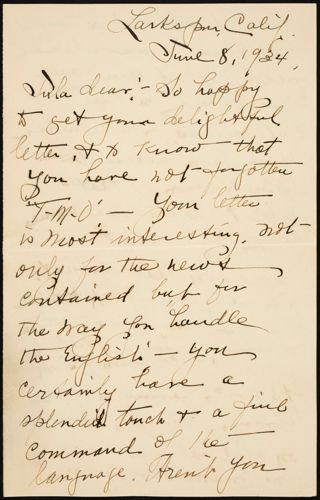 Larkspur, Calif.
June 8, 1934.
Lula dear:- So happy
to get your delightful
letter, & to know that
you have not forgotten
"T-M-O". - Your letter
is most interesting, not
only for the news
contained but for
the way you "handle
the English" - you
certainly have a
splendid touch & a fine
command of the
language. Aren't you